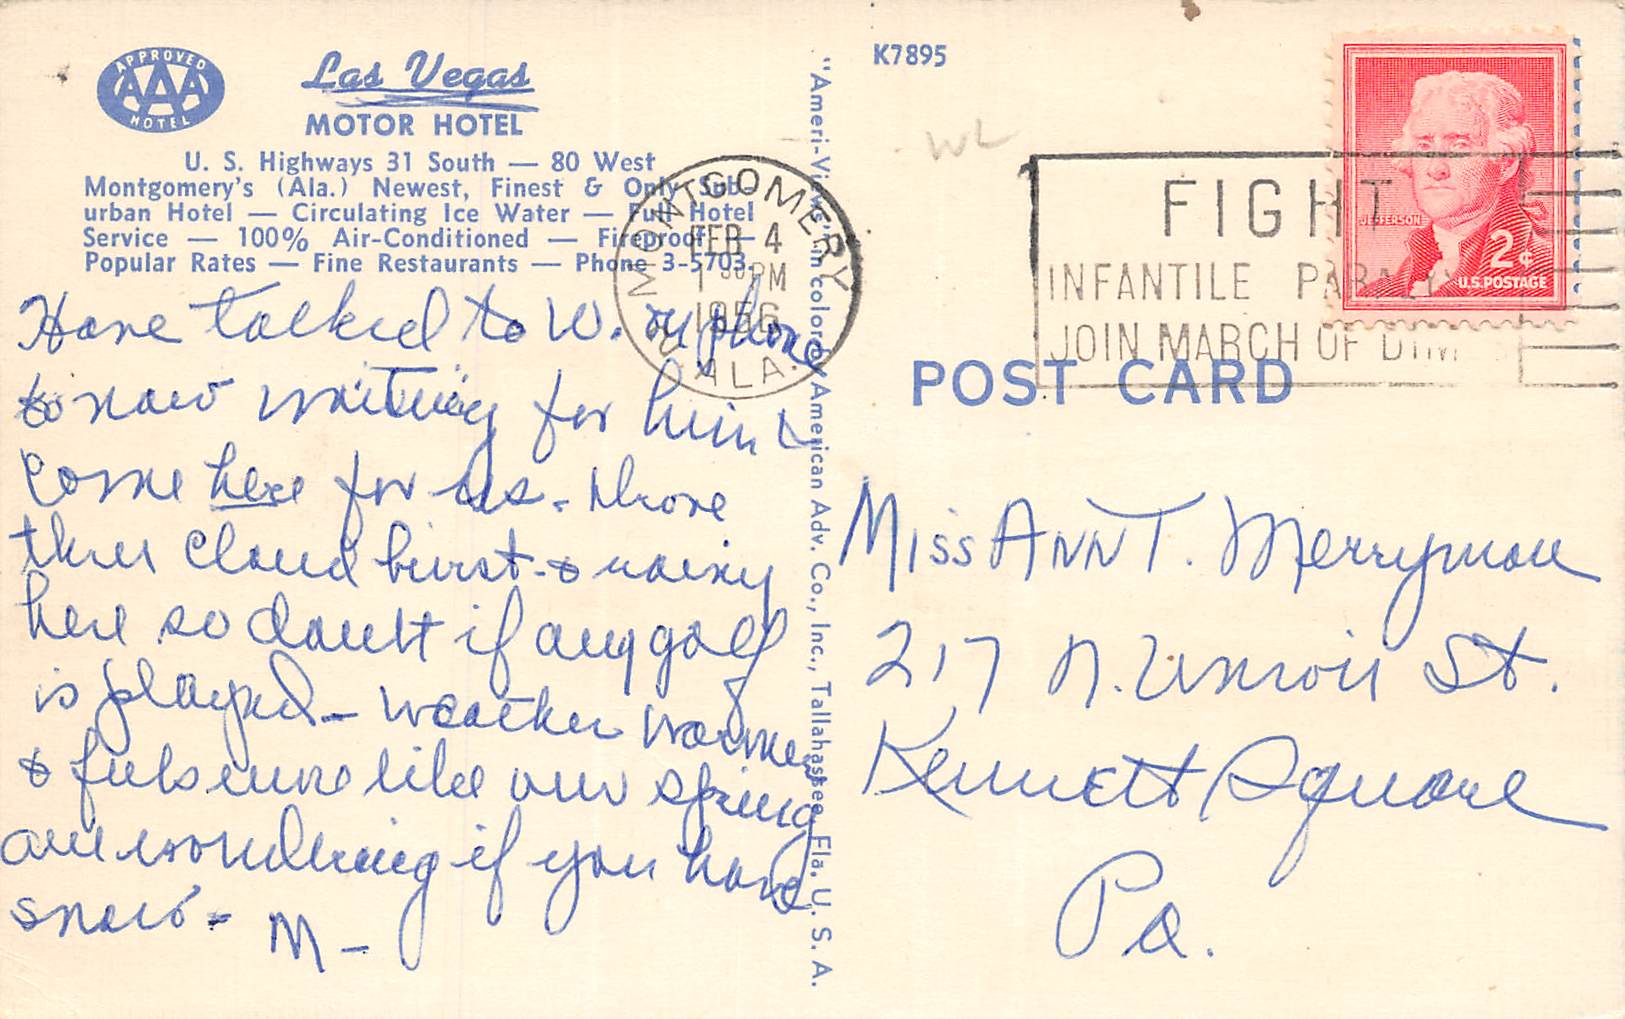 APPROVED
AAA
HOTEL
Las Vegas
MOTOR HOTEL
U. S. Highways 31 South — 80 West
Montgomery's (Ala.) Newest, Finest & Only Sub-
urban Hotel — Circulating Ice Water — Full Hotel
Service — 100% Air-Conditioned — Fireproof —
Popular Rates — Fine Restaurants — Phone 3-5703.
Have talked to W. by phone
& now waiting for him to
come here for us. Drove
thru cloud burst & rainy
here so doubt if any golf
is played — weather warmer
& feels more like our spring
are wondering if you have
snow - M —
"Ameri-Views" in color by American Adv. Co., Inc., Tallahassee, Fla. U. S. A.
K7895
WL
MONTGOMERY
FEB 4
1 30 PM
1956
ALA.
FIGHT
INFANTILE PARALYSIS
JOIN MARCH OF DIMES
JEFFERSON
2¢
U.S. POSTAGE
POST CARD
Miss Ann T. Merryman
217 N. Union St.
Kennett Square
Pa.